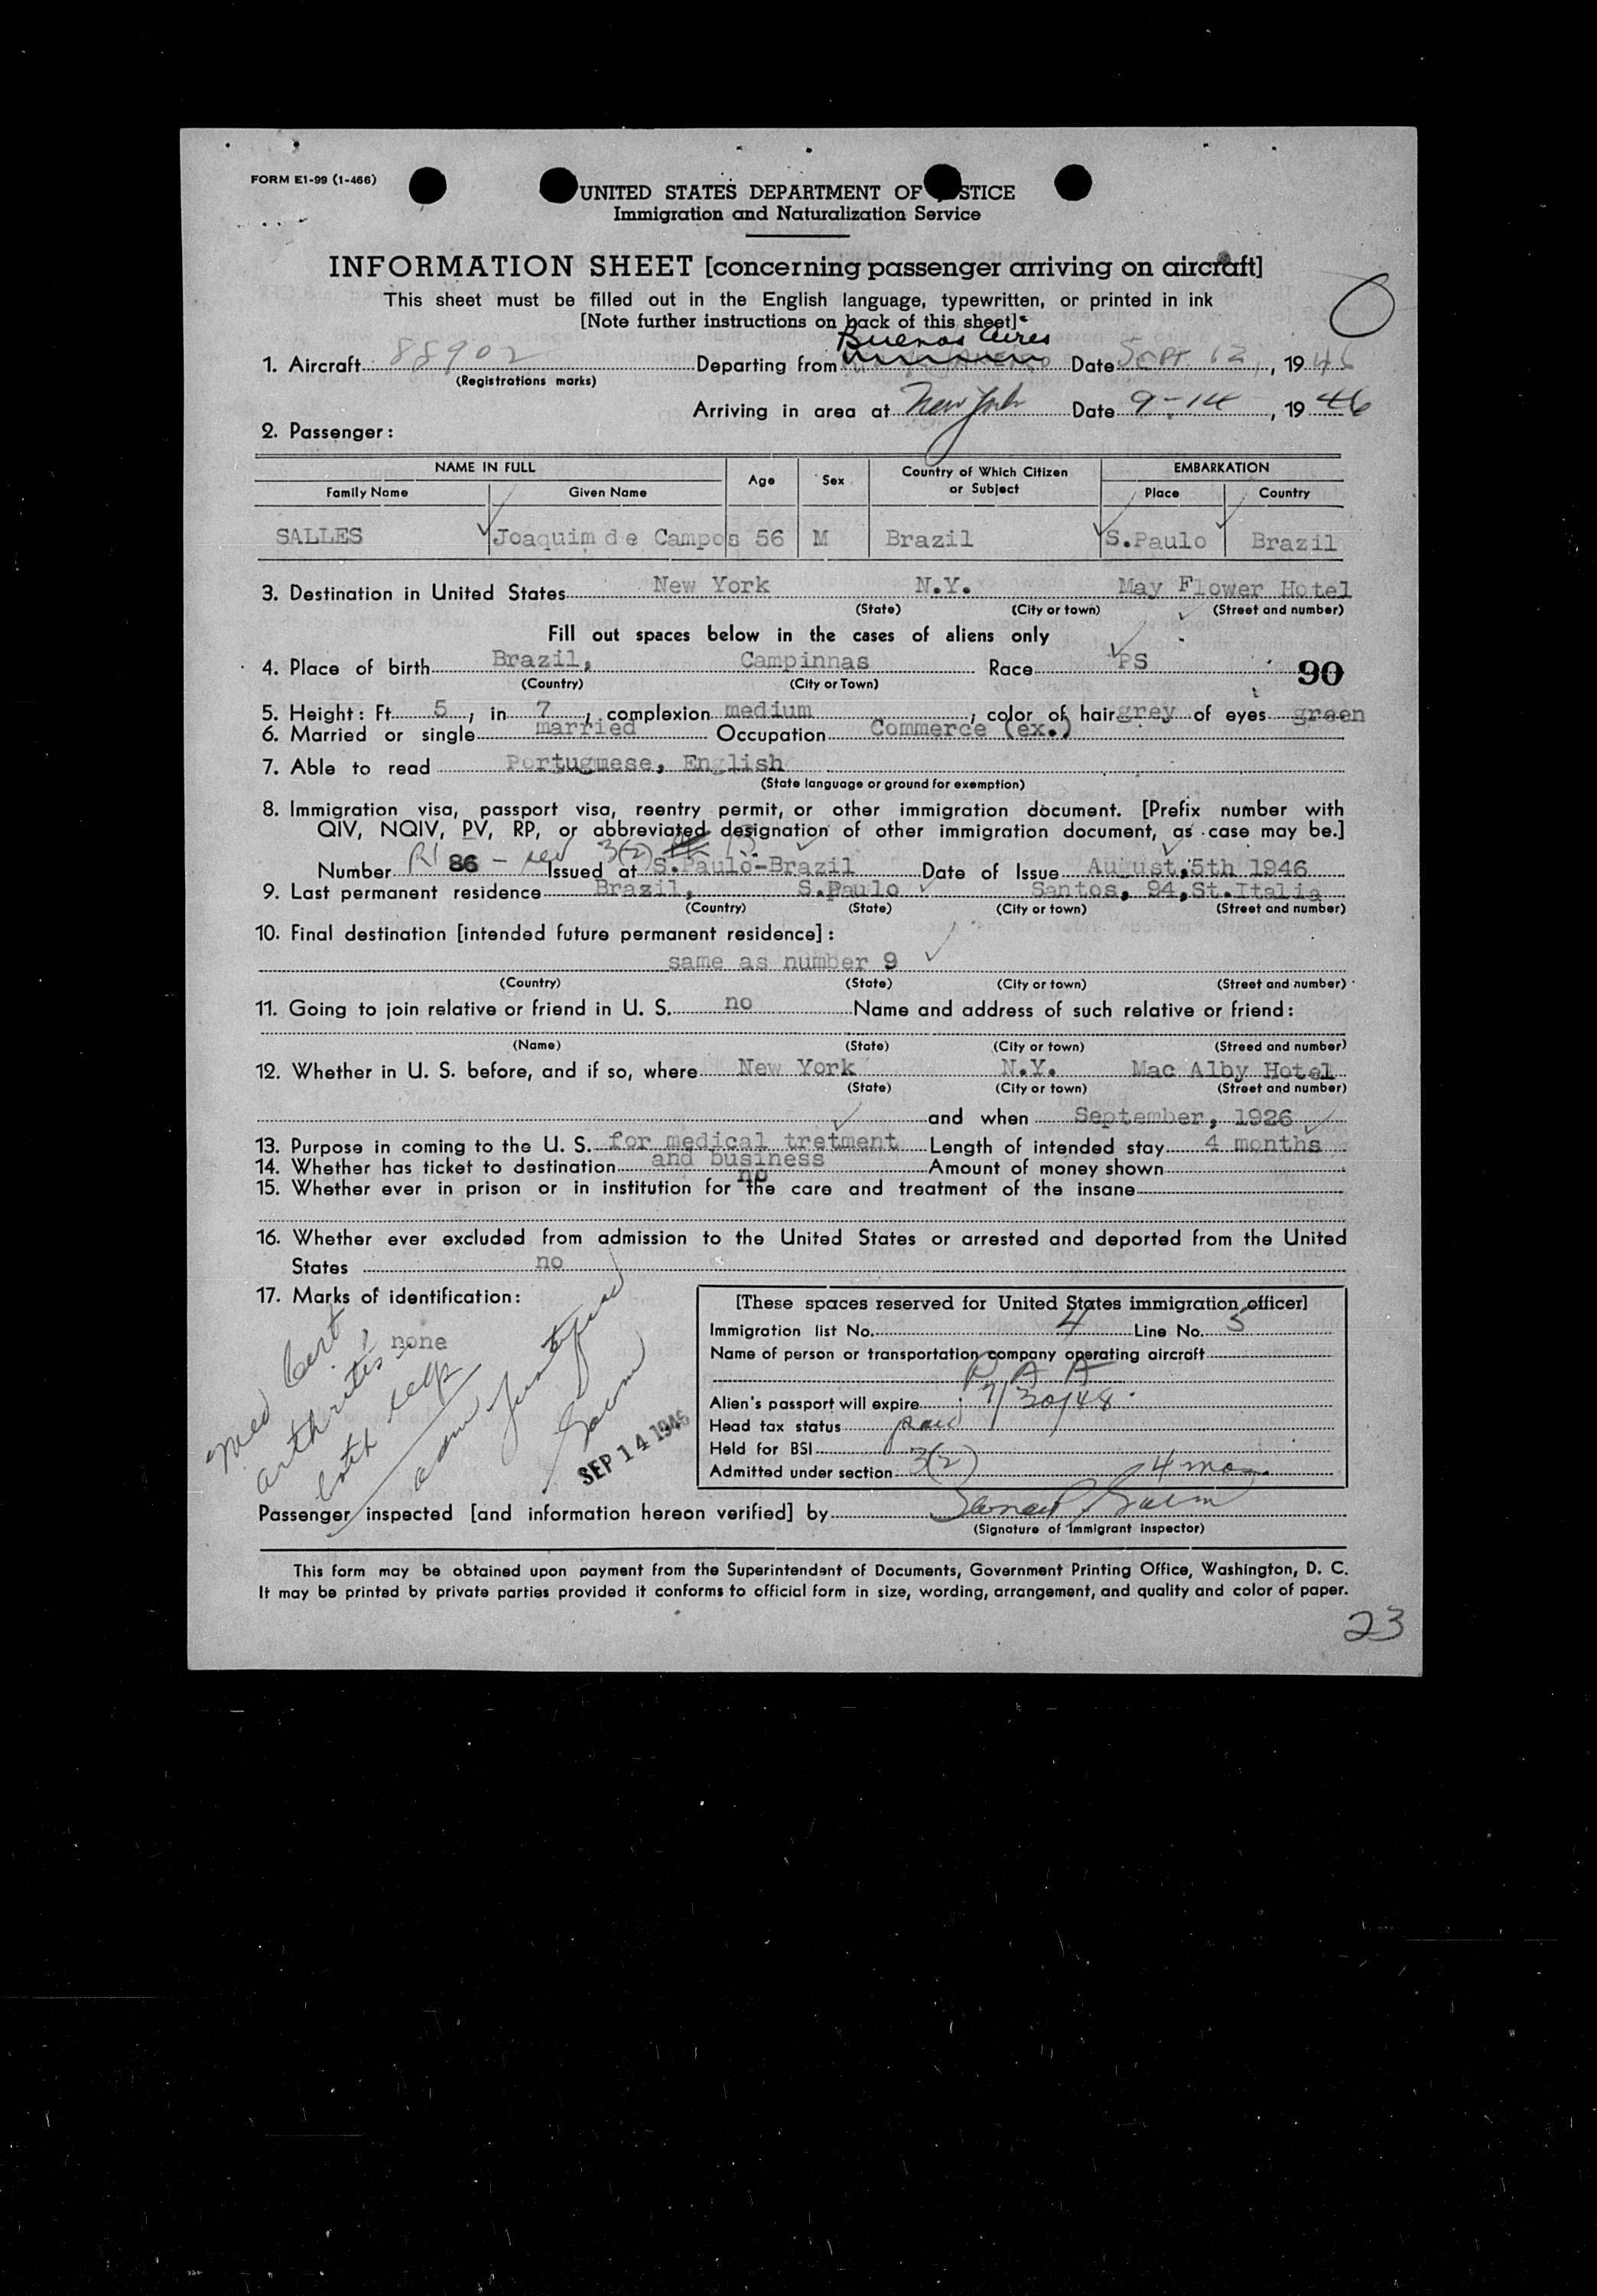 FORM E1-99 (1-466)
UNITED STATES DEPARTMENT OF STICE
Immigration and Naturalization Service
INFORMATION SHEET [concerning passenger arriving on aircraft]
This sheet must be filled out in the English language, typewritten, or printed in ink
[Note further instructions on back of this sheet]
Buenos Aires
1. Aircraft 88902 Departing from Date Sept. 12, 1946
(Registrations marks)
Arriving in area at New York Date 9-14, 1946
2. Passenger:
NAME IN FULL Age Sex Country of Which Citizen or Subject EMBARKATION
Family Name Given Name Place Country
SALLES Joaquim de Campos 56 M Brazil S.Paulo Brazil
3. Destination in United States New York N.Y. May Flower Hotel
(State) (City or town) (Street and number)
Fill out spaces below in the cases of aliens only
4. Place of birth Brazil, Campinnas Race PS 90
(Country) (City or Town)
5. Height: Ft. 5, in 7, complexion medium, color of hair grey of eyes green
6. Married or single married Occupation Commerce (ex.)
7. Able to read Portugmese, English
(State language or ground for exemption)
8. Immigration visa, passport visa, reentry permit, or other immigration document. [Prefix number with
QIV, NQIV, PV, RP, or abbreviated designation of other immigration document, as case may be.]
3(2)
Number 86 - Issued at S.Paulo-Brazil Date of Issue August,5th 1946
9. Last permanent residence Brazil, S.Paulo Santos, 94,St.Italia
(Country) (State) (City or town) (Street and number)
10. Final destination [intended future permanent residece]:
same as number 9
(Country) (State) (City or town) (Street and number)
11. Going to join relative or friend in U. S. no Name and address of such relative or friend:
(Name) (State) (City or town) (Streed and number)
12. Whether in U. S. before, and if so, where New York N.Y. Mac Alby Hotel
(State) (City or town) (Street and number)
and when September, 1926
13. Purpose in coming to the U. S. for medical tretment Length of intended stay 4 months
14. Whether has ticket to destination and business Amount of money shown
15. Whether ever in prison or in institution for the care and treatment of the insane
no
16. Whether ever excluded from admission to the United States or arrested and deported from the United
States no
17. Marks of identification:
none
Med Cert
arthritis
SEP 14 1946
[These spaces reserved for United States immigration officer]
Immigration list No. 4 Line No. 5
Name of person or transportation company operating aircraft
P A A
Alien's passport will expire 7/30/48
Head tax status paid
Held for BSI
Admitted under section 3(2) 4 mos.
Passenger inspected [and information hereon verified] by
(Signature of immigrant inspector)
This form may be obtained upon payment from the Superintendent of Documents, Government Printing Office, Washington, D. C.
It may be printed by private parties provided it conforms to official form in size, wording, arrangement, and quality and color of paper.
23